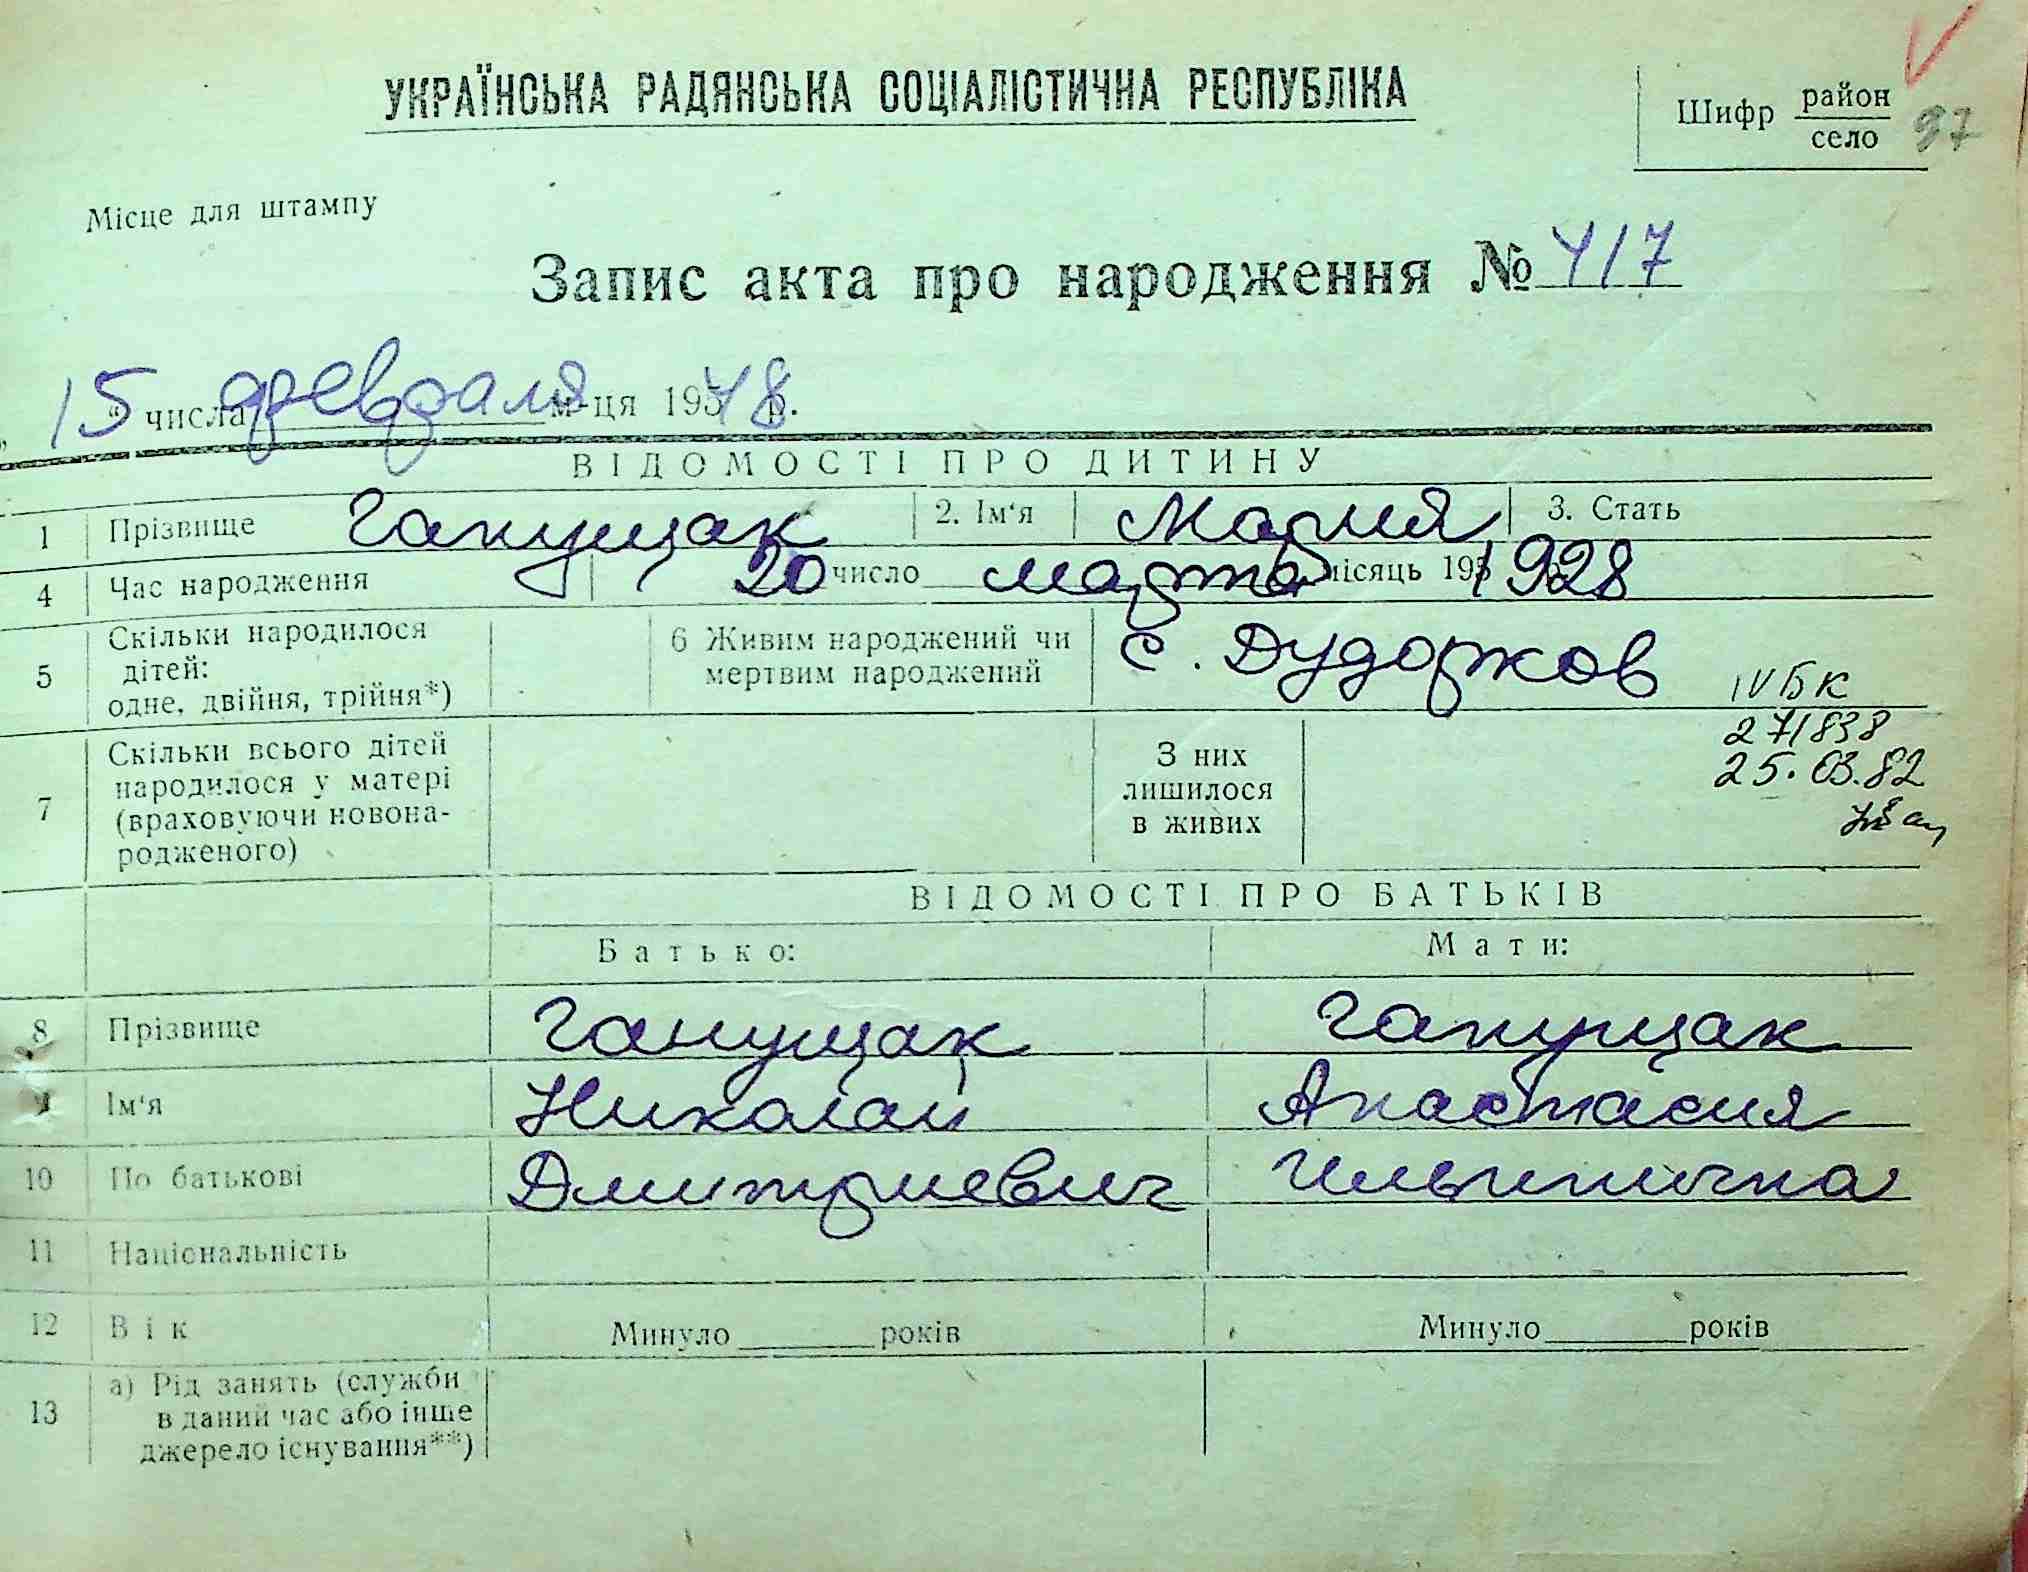 УКРАЇНСЬКА РАДЯНСЬКА СОЦІАЛІСТИЧНА РЕСПУБЛІКА
Шифр район
село 37
Місце для штампу
Запис акта про народження № 417
„15“ числа февраля м-ця 195 48 р.
ВІДОМОСТІ ПРО ДИТИНУ
1 Прізвище Ганущак 2. Ім‘я Мария 3. Стать
4 Час народження 20 число марта місяць 195 1928
5 Скільки народилося
дітей:
одне, двійня, трійня*)
6 Живим народжений чи
мертвим народжений
с. Дудоржов
IV БК
271838
25.03.82
7 Скільки всього дітей
народилося у матері
(враховуючи новона-
родженого)
З них
лишилося
в живих
ВІДОМОСТІ ПРО БАТЬКІВ
Батько: Мати:
8 Прізвище Ганущак Ганущак
9 Ім‘я Николай Анастасия
10 По батькові Дмитриевич Ильинична
11 Національність
12 Вік Минуло років Минуло років
13 а) Рід занять (служби
в даний час або інше
джерело існування**)